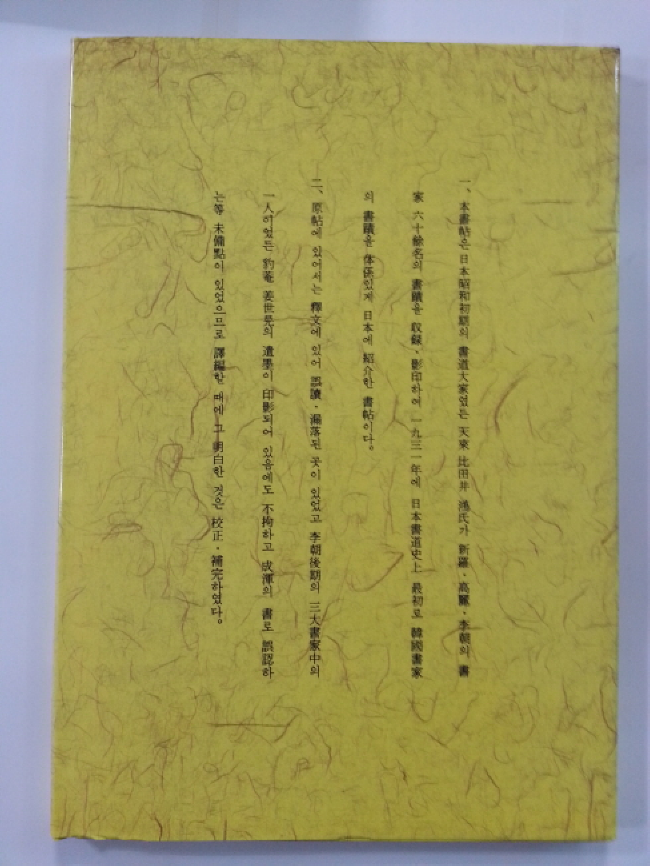 一、本書帖은 日本昭和初期의 書道大家였든 天來 比田井 鴻氏가 新羅·高麗·李朝의 書
家 六十餘名의 書蹟을 収録·影印하여 一九三一年에 日本書道史上 最初로 韓國書家
의 書蹟을 体係있게 日本에 紹介한 書帖이다。
二、原帖에 있어서는 釋文에 있어 誤讀·漏落된 곳이 있었고 李朝後期의 三大書家中의
一人이었든 豹菴 姜世晃의 遺墨이 印影되어 있음에도 不拘하고 成渾의 書로 誤認하
는等 未備點이 있었으므로 譯編할 때에 그 明白한 것은 校正·補完하였다。